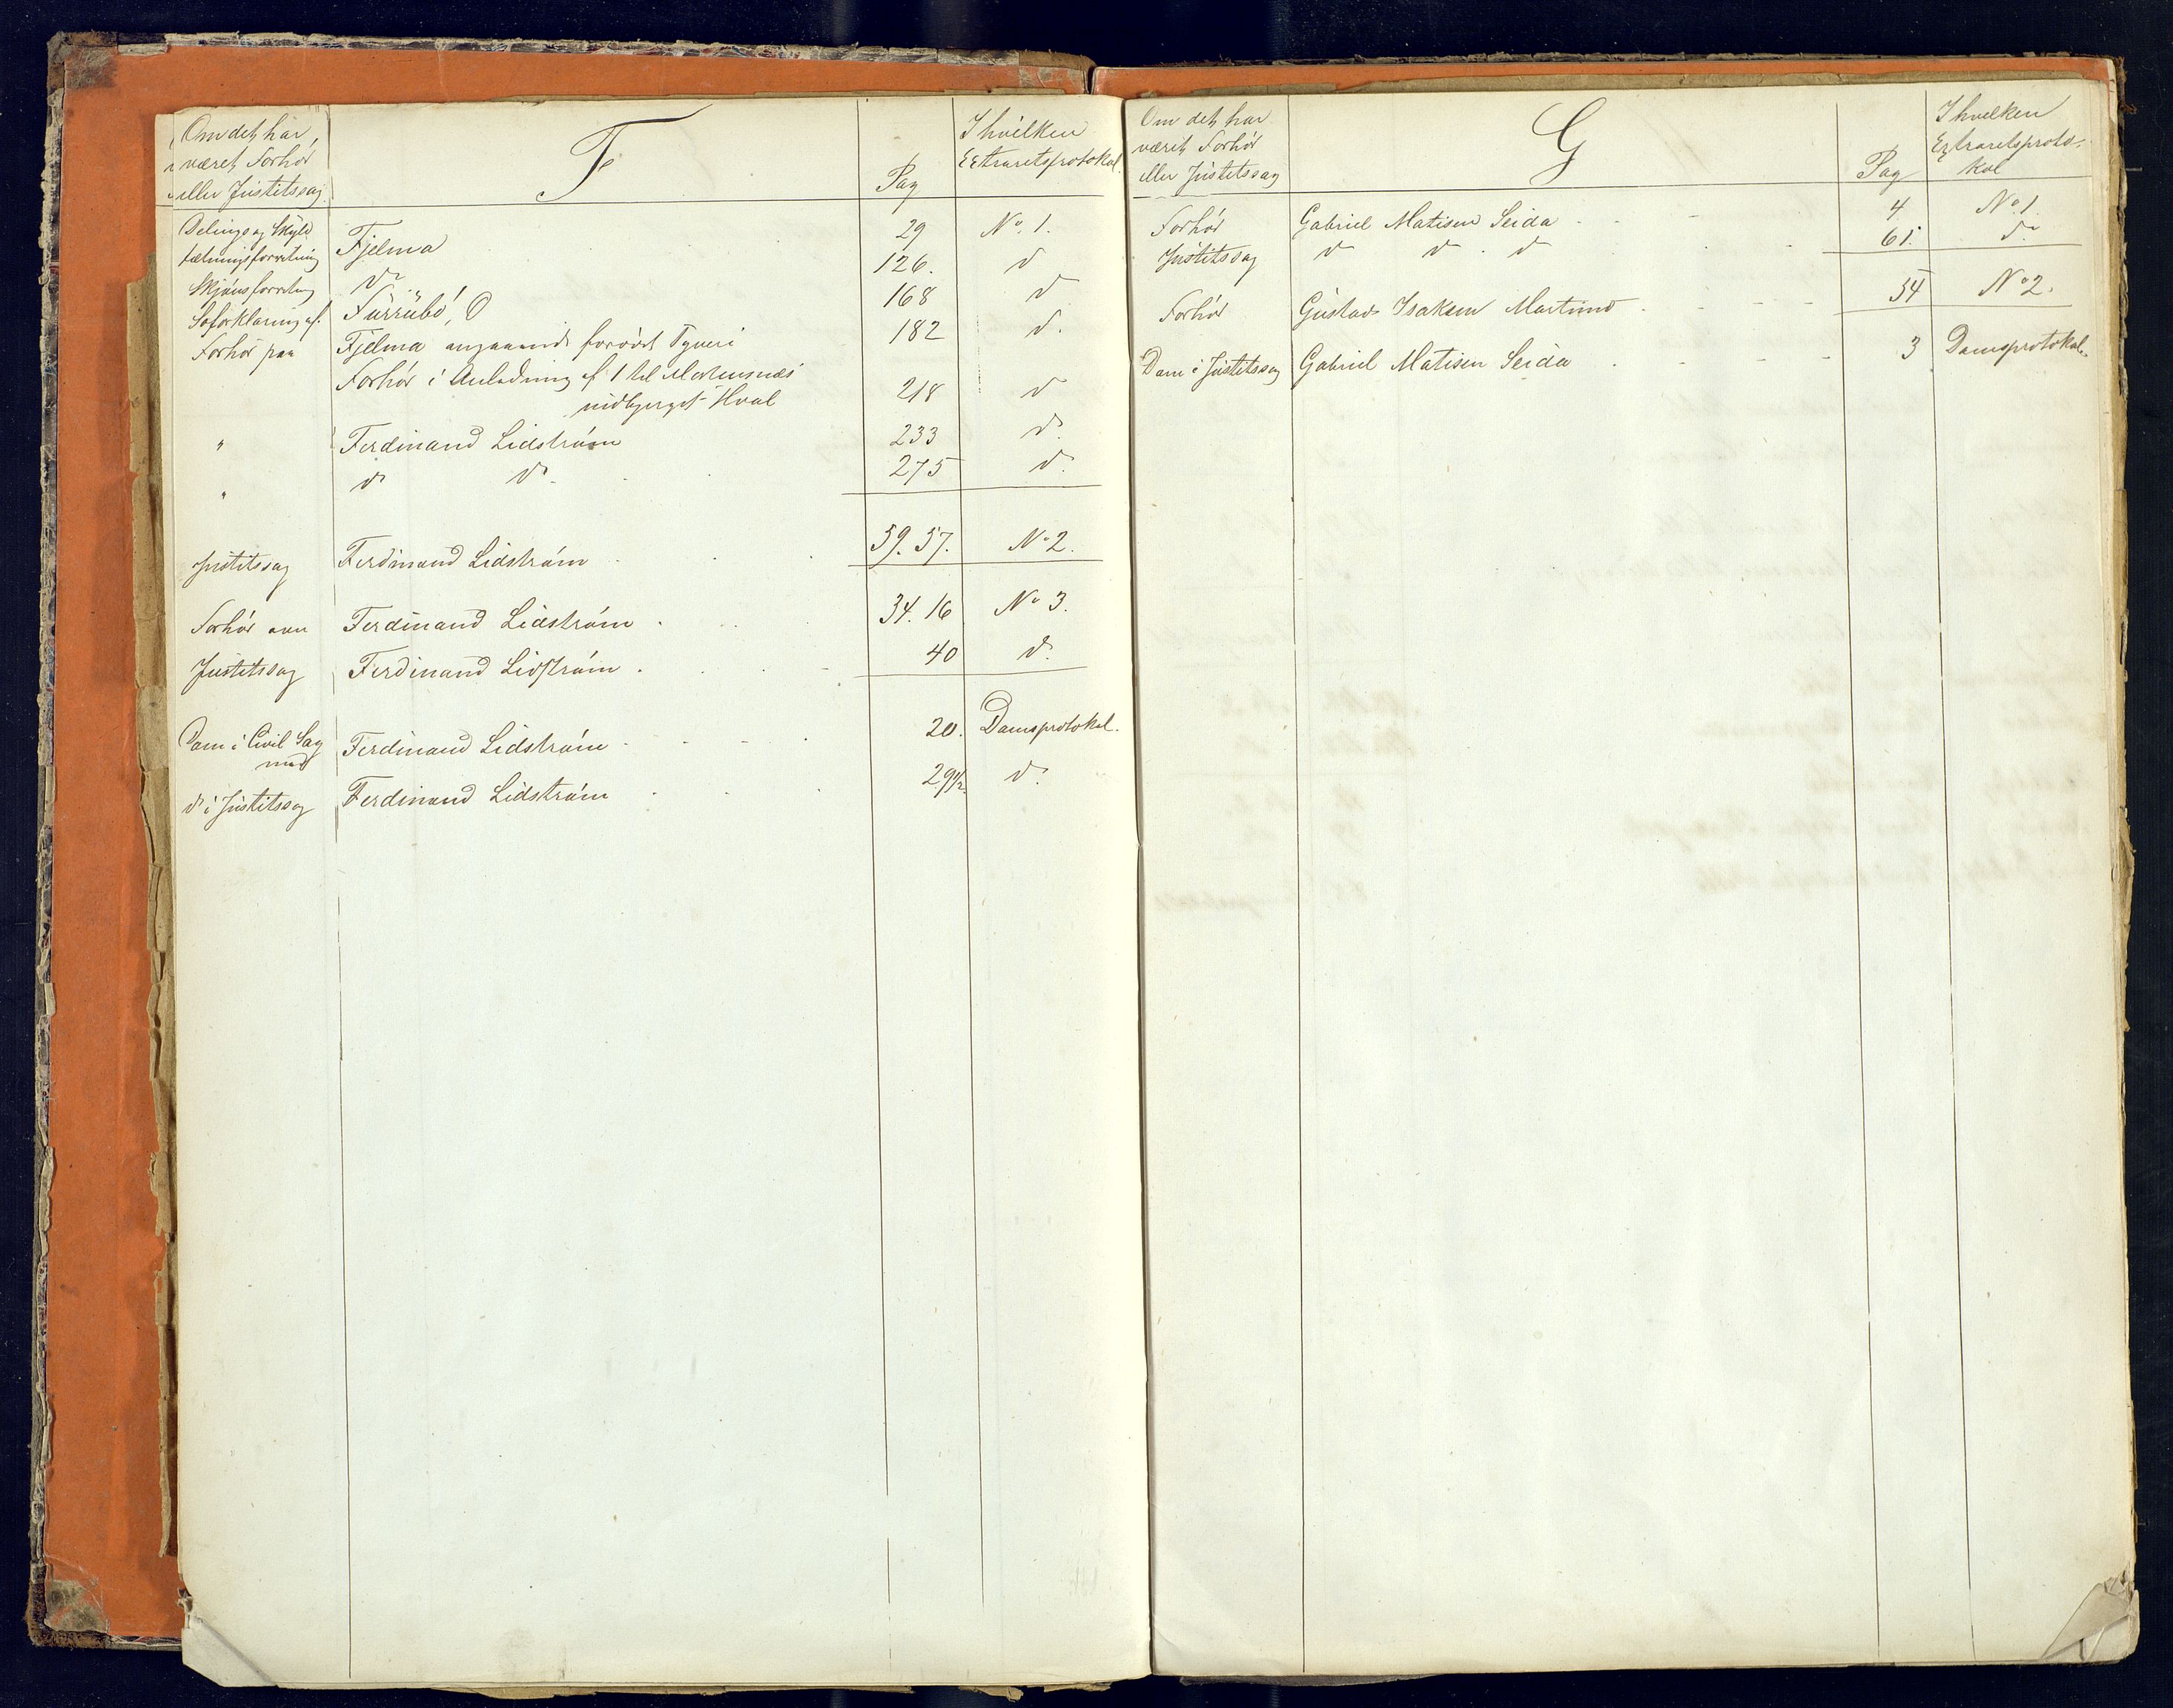 Om det har
været Forhör
eller Justitssag
F
Pag
I hvilken
Extraretsprotokol.
Delings og Skyld
delingsforretning Fjelma 29 No. 1.
Skjönsforretning do 126. do
Söforklaring af Furrubö, O 168 do
Forhör paa Fjelma angaaende forövet Tyveri 182 do.
Forhör i Anledning af 1 til Mortensnæs
indbjerget Hval 218 do
" Ferdinand Lidström 233 do.
" do do 275 do.
Justitssag Ferdinand Lidström 59. 57. No 2.
Forhör over Ferdinand Lidström 34. 16 No 3.
Justitssag Ferdinand Lidström 40 do.
Dom i Civil Sag
mod Ferdinand Lidström 20. Domsprotokol.
do i Justitssag Ferdinand Lidström 29½. do.
Om det har
været Forhör
eller Justitssag
G
Pag
I hvilken
Extraretsproto-
kol
Forhör Gabriel Matisen Seida 4 No. 1.
Justitssag do do do 61. do.
Forhör Gustav Isaksen 54 No 2.
Dom i Justitssag Gabriel Matisen Seida 3 Domsprotokol.